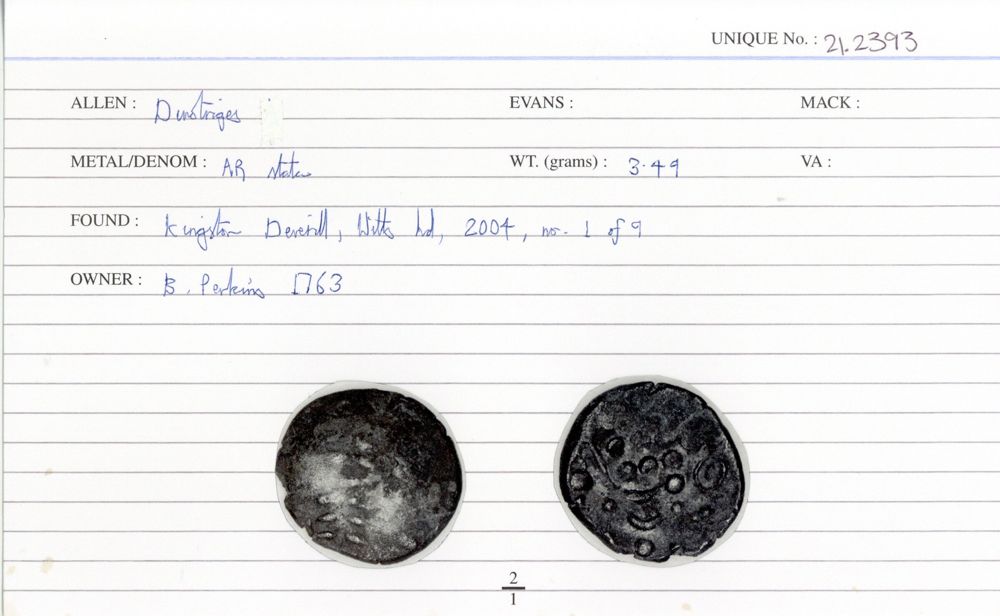 UNIQUE No. : 21.2393
ALLEN : Durotriges EVANS : MACK :
METAL/DENOM : AR stater WT. (grams) : 3.49 VA :
FOUND : Kingston Deverill, Wilts hd, 2004, no. 1 of 9
OWNER : B. Perkins 1763
2
1